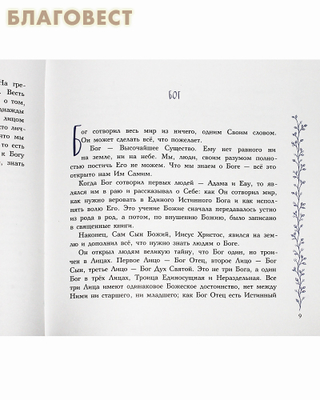 БЛАГОВЕСТ
На гре-
Весть
о том,
днажды
лицом
сто лич-
что мы
то есть
к Богу
знать
БОГ
Бог сотворил весь мир из ничего, одним Своим словом.
Он может сделать всё, что пожелает.
Бог — Высочайшее Существо. Ему нет равного ни
на земле, ни на небе. Мы, люди, своим разумом полно-
стью постичь Его не можем. Что мы знаем о Боге — всё это
открыто нам Им Самим.
Когда Бог сотворил первых людей — Адама и Еву, то яв-
лялся им в раю и рассказывал о Себе: как Он сотворил мир,
как нужно веровать в Единого Истинного Бога и как испол-
нять волю Его. Это учение Божие сначала передавалось устно
из рода в род, а потом, по внушению Божию, было записано
в священные книги.
Наконец, Сам Сын Божий, Иисус Христос, явился на зем-
лю и дополнил всё, что нужно знать людям о Боге.
Он открыл людям великую тайну, что Бог один, но трои-
чен в Лицах. Первое Лицо — Бог Отец, второе Лицо — Бог
Сын, третье Лицо — Бог Дух Святой. Это не три Бога, а один
Бог в трёх Лицах, Троица Единосущная и Нераздельная. Все
три Лица имеют одинаковое Божеское достоинство, нет между
Ними ни старшего, ни младшего; как Бог Отец есть Истинный